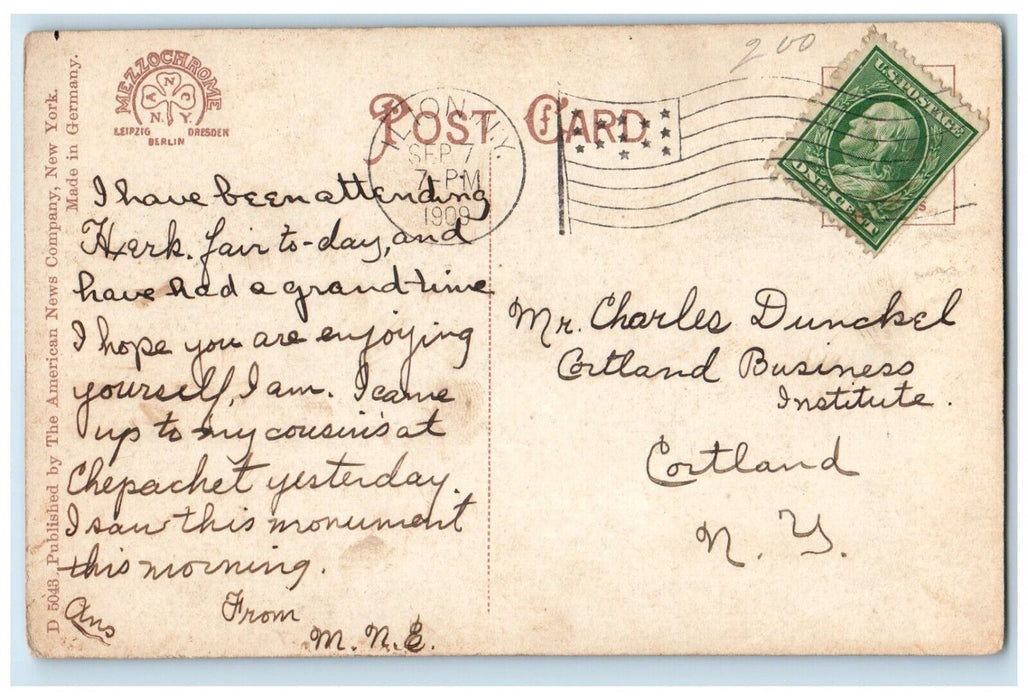 200
MEZZOCHROME
A N C
N. Y.
LEIPZIG DRESDEN
BERLIN
POST CARD
ILION, N.Y.
SEP 7
7-PM
1909
U.S. POSTAGE
ONE CENT
D 5043. Published by The American News Company, New York.
Made in Germany.
I have been attending
Herk. fair to-day, and
have had a grand time
I hope you are enjoying
yourself, I am. I came
up to my cousin's at
Chepachet yesterday.
I saw this monument
this morning.
From
M. N. E.
Ans
Mr. Charles Dunckel
Cortland Business
Institute.
Cortland
N. Y.